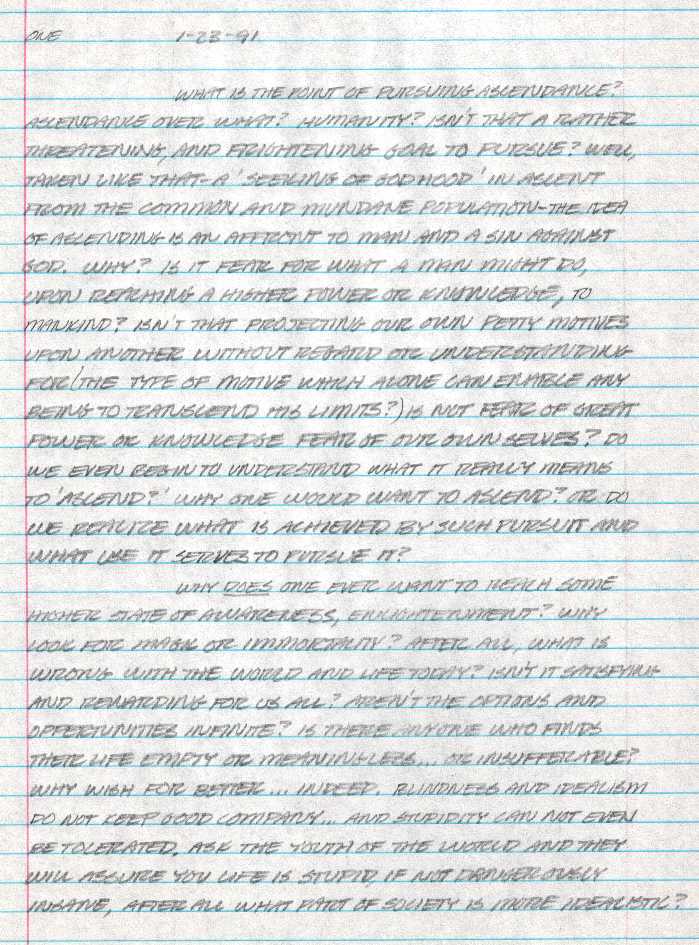 ONE 1-23-91
WHAT IS THE POINT OF PURSUING ASCENDANCE?
ASCENDANCE OVER WHAT? HUMANITY? ISN'T THAT A RATHER
THREATENING, AND FRIGHTENING GOAL TO PURSUE? WELL,
TAKEN LIKE THAT-A 'SEEKING OF GODHOOD' IN ASCENT
FROM THE COMMON AND MUNDANE POPULATION-THE IDEA
OF ASCENDING IS AN AFFRONT TO MAN AND A SIN AGAINST
GOD. WHY? IS IT FEAR FOR WHAT A MAN MIGHT DO,
UPON REACHING A HIGHER POWER OR KNOWLEDGE, TO
MANKIND? ISN'T THAT PROJECTING OUR OWN PETTY MOTIVES
UPON ANOTHER WITHOUT REGARD OR UNDERSTANDING
FOR (THE TYPE OF MOTIVE WHICH ALONE CAN ENABLE ANY
BEING TO TRANSCEND HIS LIMITS?) IS NOT FEAR OF GREAT
POWER OR KNOWLEDGE FEAR OF OUR OWN SELVES? DO
WE EVEN BEGIN TO UNDERSTAND WHAT IT REALLY MEANS
TO 'ASCEND?' WHY ONE WOULD WANT TO ASCEND? OR DO
WE REALIZE WHAT IS ACHIEVED BY SUCH PURSUIT AND
WHAT USE IT SERVES TO PURSUE IT?
WHY DOES ONE EVER WANT TO REACH SOME
HIGHER STATE OF AWARENESS, ENLIGHTENMENT? WHY
LOOK FOR MAGIK OR IMMORTALITY? AFTER ALL, WHAT IS
WRONG WITH THE WORLD AND LIFE TODAY? ISN'T IT SATISFYING
AND REWARDING FOR US ALL? AREN'T THE OPTIONS AND
OPPERTUNITIES INFINITE? IS THERE ANYONE WHO FINDS
THEIR LIFE EMPTY OR MEANINGLESS... OR INSUFFERABLE?
WHY WISH FOR BETTER... INDEED. BLINDNESS AND IDEALISM
DO NOT KEEP GOOD COMPANY... AND STUPIDITY CAN NOT EVEN
BE TOLERATED. ASK THE YOUTH OF THE WORLD AND THEY
WILL ASSURE YOU LIFE IS STUPID, IF NOT DANGEROUSLY
INSANE, AFTER ALL WHAT PART OF SOCIETY IS MORE IDEALISTIC?